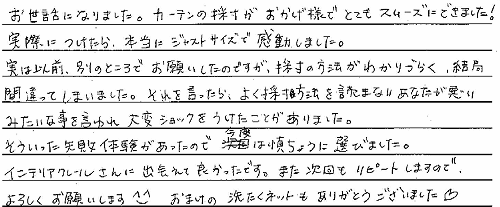 お世話になりました。カーテンの採寸がおかげ様でとてもスムーズにできました!
実際につけたら、本当にジャストサイズで感動しました。
実は以前、別のところでお願いしたのですが、採寸の方法がわかりづらく、結局
間違ってしまいました。それを言ったら、よく採寸方法を読まないあなたが悪い
みたいな事を言われ大変ショックをうけたことがありました。
そういった失敗体験があったので今度は慎ちょうに選びました。
インテリアクレールさんに出会えて良かったです。また次回もリピートしますので、
よろしくお願いします おまけの洗たくネットもありがとうございました